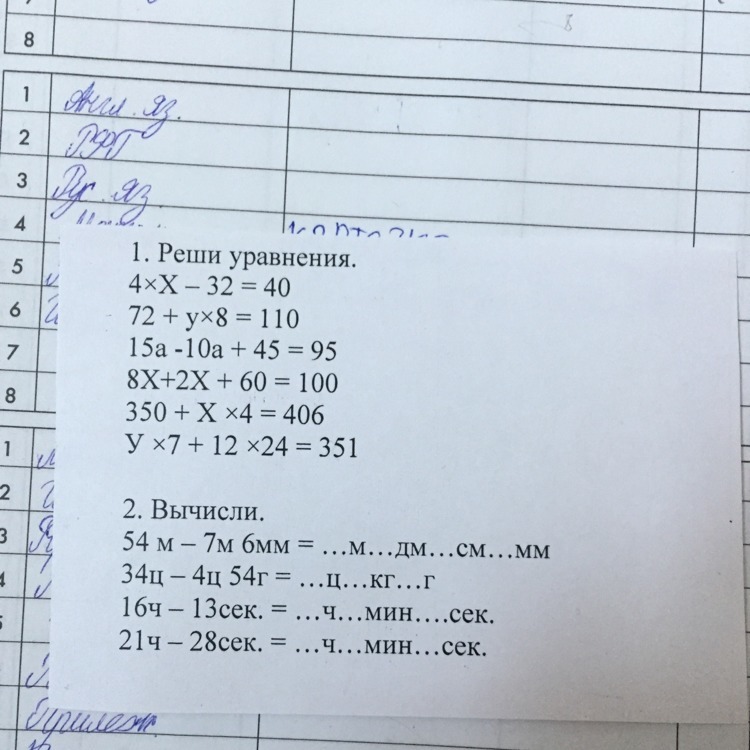 8
1 Англ. яз.
2 РФП
3 Рус. яз.
4
5
6
7
8
1. Реши уравнения.
4×X – 32 = 40
72 + y×8 = 110
15a -10a + 45 = 95
8X+2X + 60 = 100
350 + X ×4 = 406
У ×7 + 12 ×24 = 351
2. Вычисли.
54 м – 7м 6мм = …м…дм…см…мм
34ц – 4ц 54г = …ц…кг…г
16ч – 13сек. = …ч…мин….сек.
21ч – 28сек. = …ч…мин…сек.
1
2
3
4